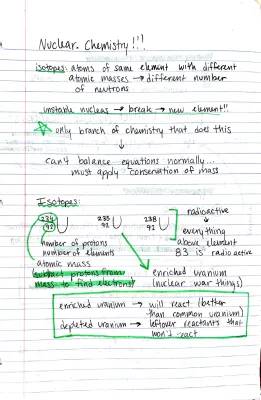 Nuclear Chemistry!!!
isotopes: atoms of same element with different
atomic masses → different number
of neutrons
unstable nucleus → break → new element!!
☆ only branch of chemistry that does this
↓
can't balance equations normally...
must apply conservation of mass
Isotopes:
234 92 U 235 92 U 238 92 U
radioactive
↓
everything
above element
83 is radioactive
number of protons
number of elements
atomic mass
subtract protons from
mass to find electrons!
enriched uranium
(nuclear war things)
enriched uranium → will react (better
than common uranium)
depleted uranium → leftover reactants that
won't react